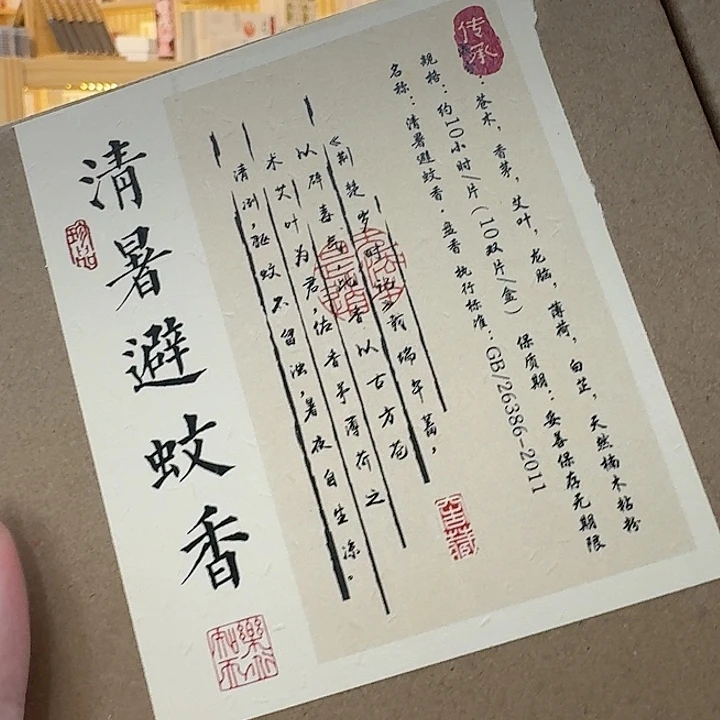 传承
：苍术，香茅，艾叶，龙脑，薄荷，白芷，天然楠木粘粉
规格：约10小时/片（10双片/盒） 保质期：妥善保存无期限
名称：清暑避蚊香·盘香 执行标准：GB/26386-2011
《荆楚岁时记》载端午蓄，
以辟毒气，此香以古方苍
术艾叶为君，佐香茅薄荷之
清冽，驱蚊不留浊，暑夜自生凉。
清暑避蚊香
珍品